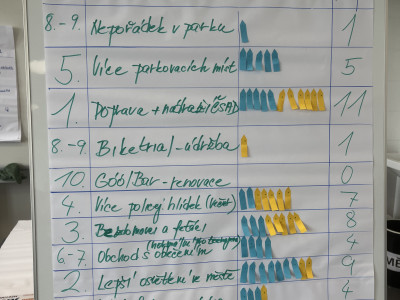 8.-9. Nepořádek v parku 1
5. Více parkovacích míst 5
1. Doprava + nádraží ČSAD 11
8.-9. Biketrial - údržba 1
10. Góól/Bar - renovace 0
4. Více policejních hlídek (noční) 7
3. Bezdomovci a feťáci 8
6.-7. Obchod s oblečením 4
2 Lepší osvětlení ve městě 9
4